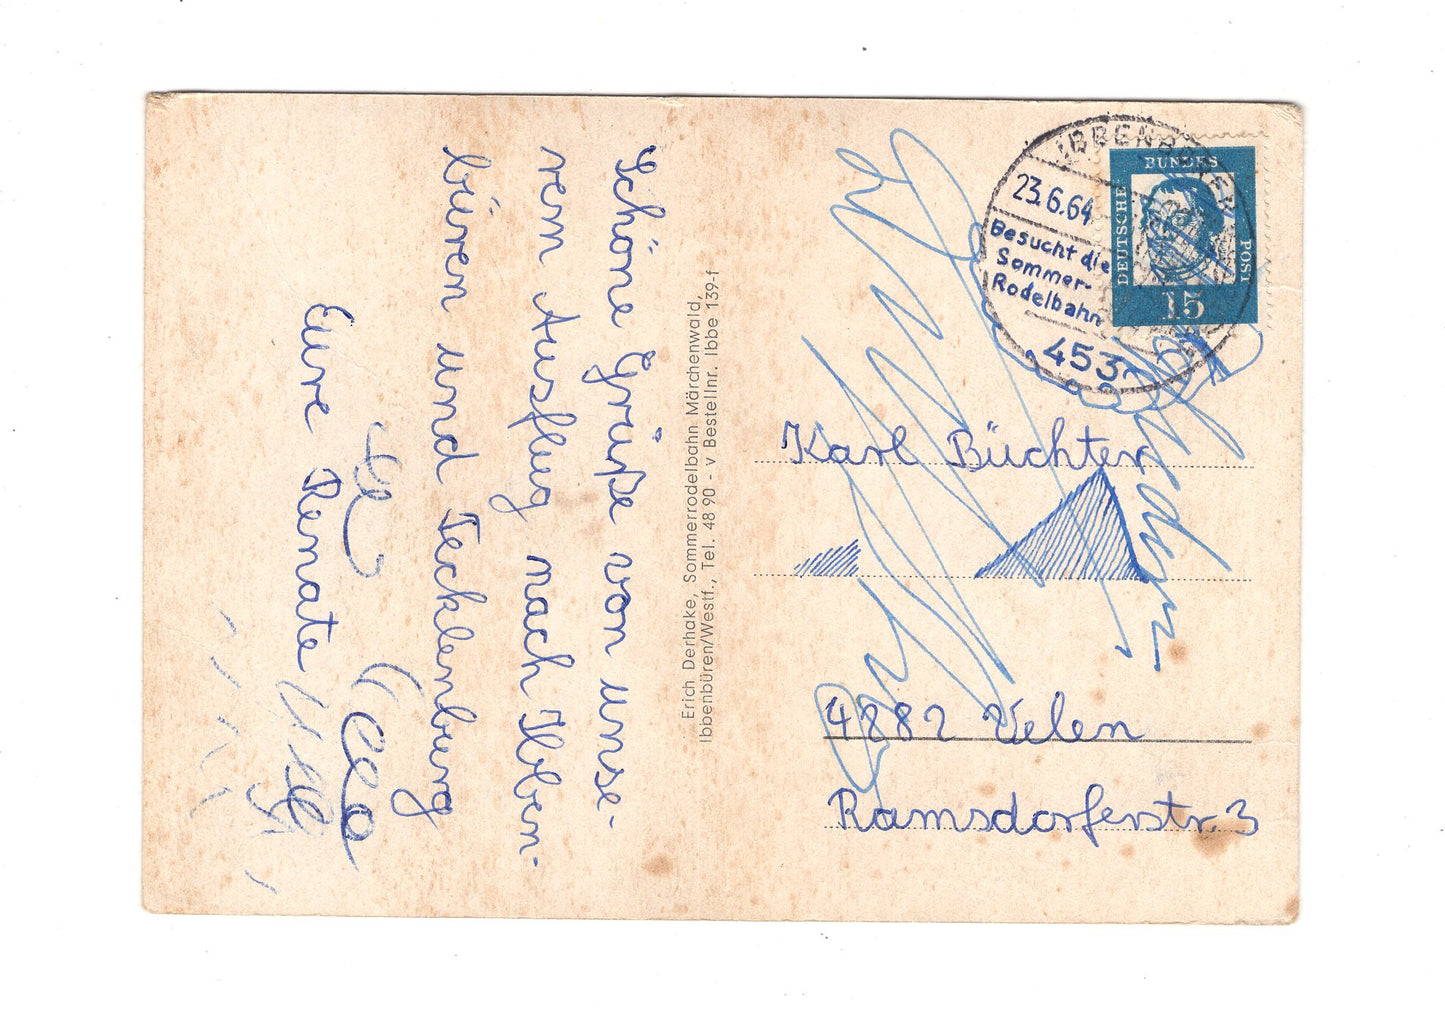 Schöne Grüße von unse-
rem Ausflug nach Ibben-
büren und Tecklenburg
Eure Renate
Erich Derhake, Sommerrodelbahn Märchenwald,
Ibbenbüren/Westf., Tel. 48 90 - v Bestellnr. Ibbe 139-f
IBBENBÜREN
23.6.64
Besucht die
Sommer-
Rodelbahn
453
DEUTSCHE
BUNDES
POST
15
Karl Büchter
4282 Velen
Ramsdorferstr. 3